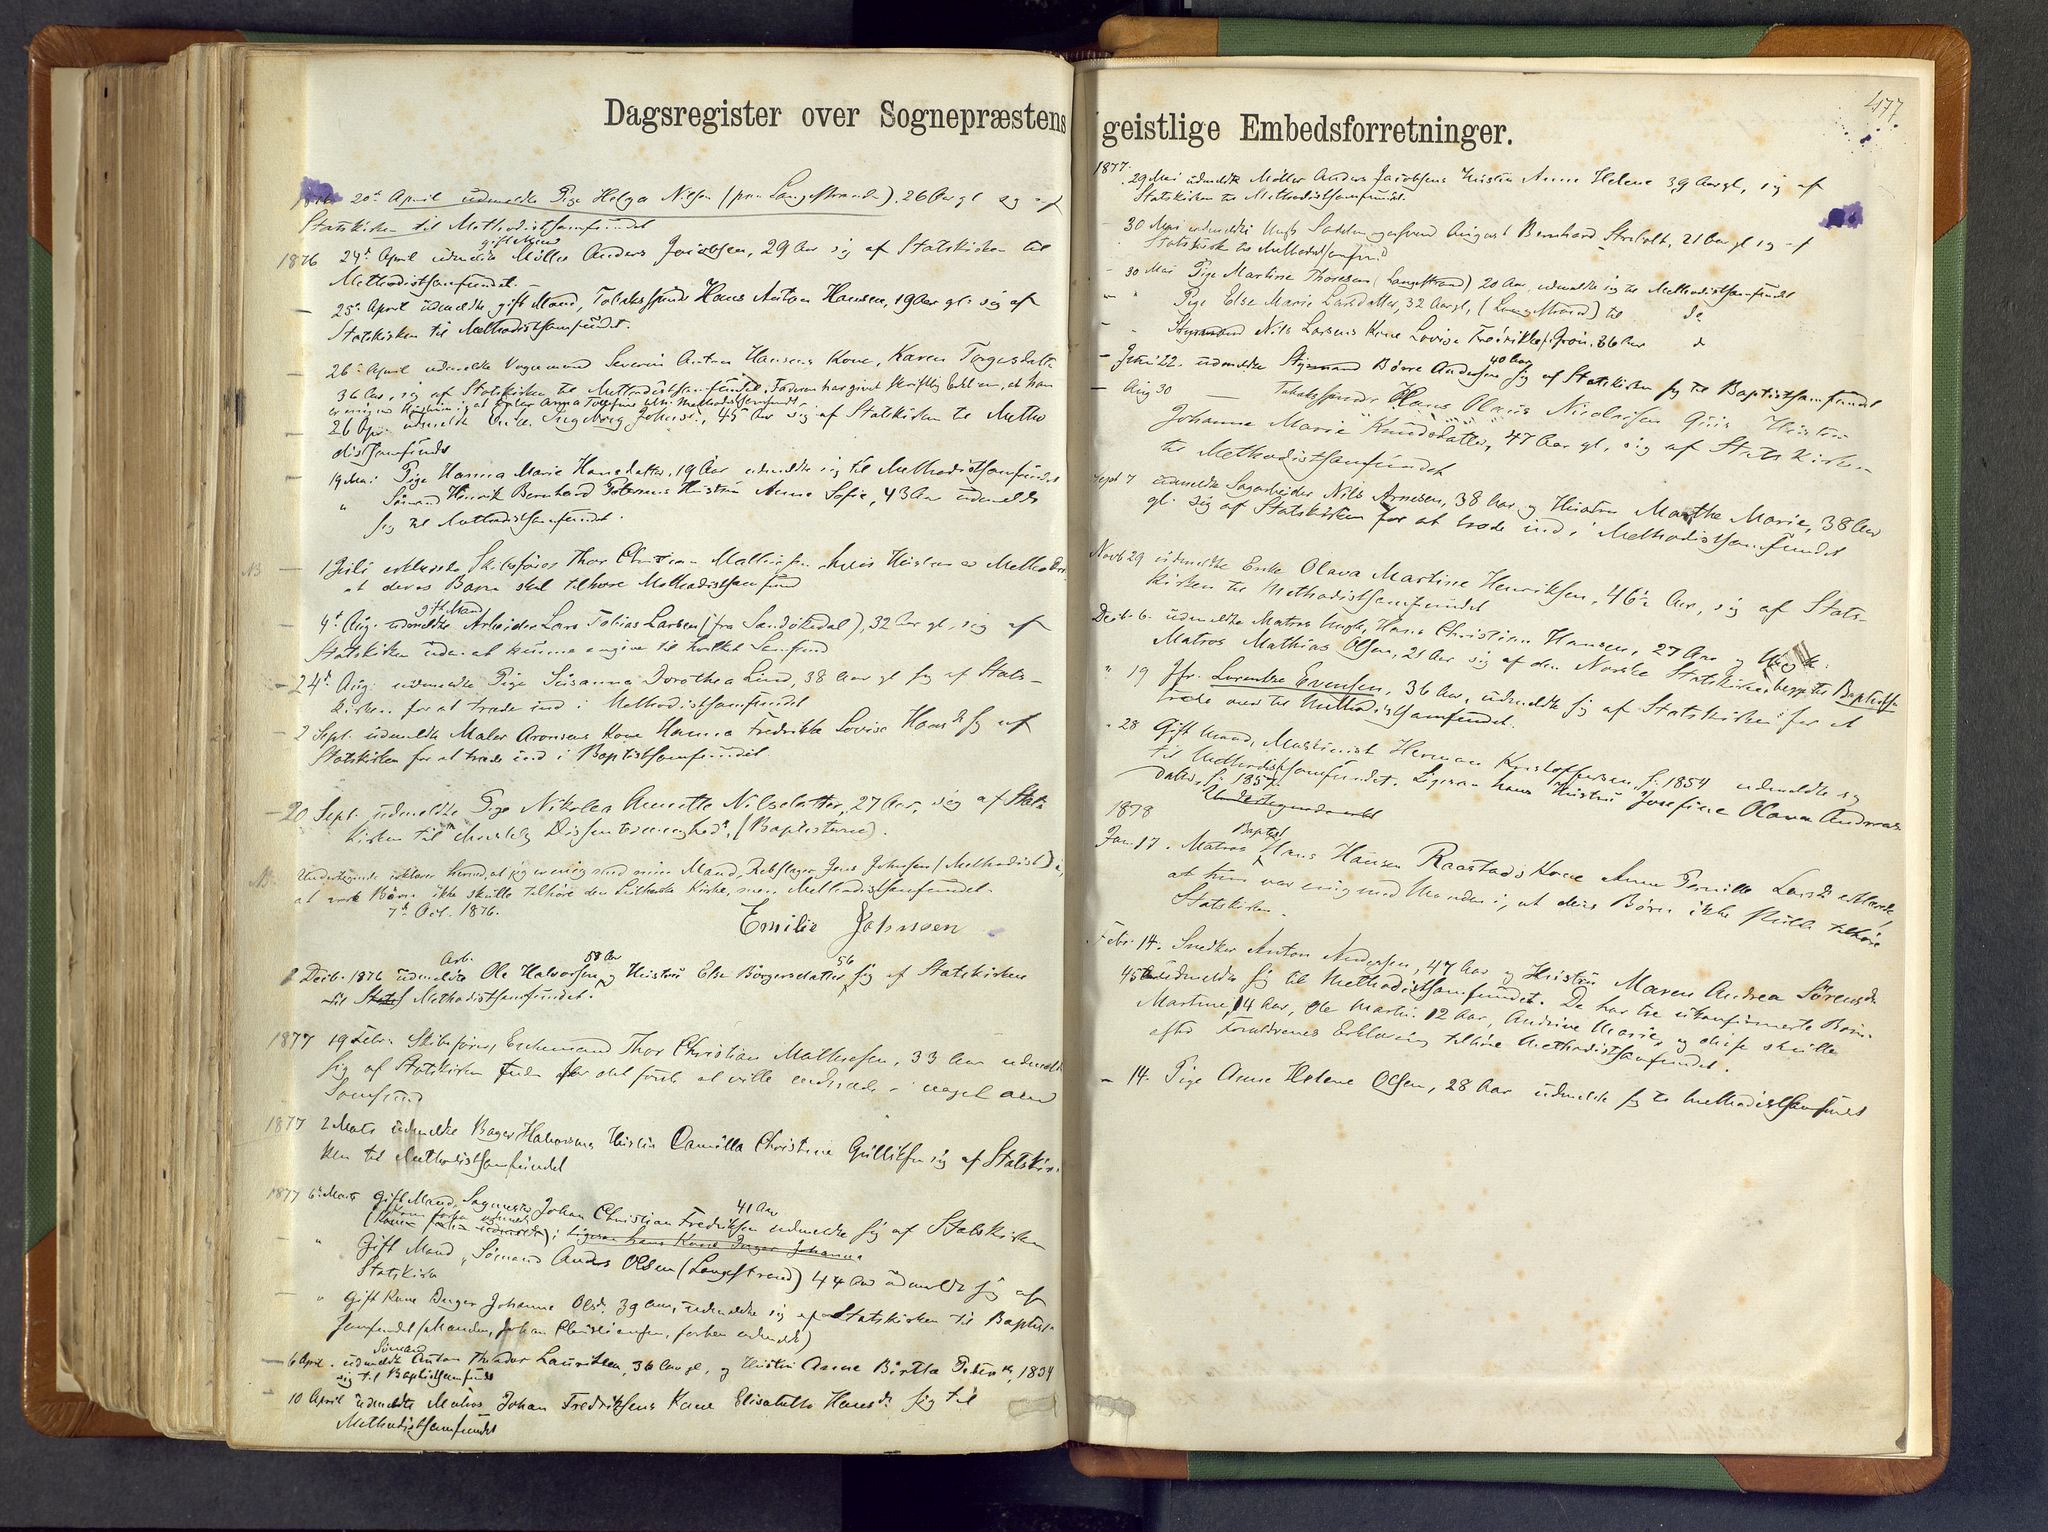 Dagsregister over Sognepræstens
20de April udmeldte Pige Helga Nilsen (paa Langestranden), 26 Aar gl sig af
Statskirken til Methodistsamfundet
gift Mand
1876 24de April udmeldte Møller Anders Jacobsen, 29 Aar sig af Statskirken til
Methodistsamfundet.
— 25de April udmeldte gift Mand, Hans Anton Hansen, 19 Aar gl. sig af
Statskirken til Methodistsamfundet.
26de April udmeldte Vognmand Severin Anton Hansens Kone, Karen
36 Aar, sig af Statskirken til Methodistsamfundet, Faderen har givet skriftlig at han
er enig med i, at Anna
— 26 Apr. udmeldte Enke Ingeborg 45 Aar sig af Statskirken til Metho
distsamfundet
— 19 Mai Pige Hanna Marie Hansdatter, 19 Aar udmeldte sig til Methodistsamfundet
" Sømand Hinrik Bernhard Hustru Anne Sofie, 43 Aar udmeldte
sig til Methodistsamfundet.
NB — 1 Juli erklærede Skibsfører Thor Christian hvis Hustru er
at deres Børn skal tilhøre Methodistsamfund
gift Mand
— 4de Aug. udmeldte Arbeider Lars Tobias Larsen (fra Sandøkedal), 32 Aar gl, sig af
Statskirken uden at kunne angive til hvilket Samfund
— 24de Aug. udmeldte Pige Susanna Dorothea Lind, 38 Aar gl sig af Stats-
kirken for at træde ind i Methodistsamfundet
— 2 Sept. udmeldte Maler Aronsens Kone Hanna Fredrikke Lovise Hansd. sig af
Statskirken for at træde ind i Baptistsamfundet
— 20 Sept. udmeldte Pige Nikolea Annette Nilsdatter, 27 Aar, sig af Stats
kirken til (Baptisterne).
NB. Undertegnede erklærer herved, at jeg er enig med min Mand, Rebslager Jens Johnsen (Methodist) i,
at vore Børn ikke skulle tilhøre den Lutherske Kirke, men Methodistsamfundet.
7de Oct. 1876.
Emilie Johnsen
Arb. 58 Aar 56
8 Decb. 1876 udmeldte Ole Halvorsen og Hustru Else Børgersdatter sig af Statskirken
til Methodistsamfundet.
1877 19 Febr. Skibsfører, Enkemand Thor Christian Mathiesen, 33 Aar udmeldte
sig af Statskirken uden at ville indtræde i noget andet
Samfund
1877 2 Marts udmeldte Bager Halvorsens Hustru Camilla Christine Gulliksen sig af Statskir-
ken til Methodistsamfundet
41 Aar
1877 6te Marts Gift Mand, Johan Christian Fredriksen udmeldte sig af Statskirken
(Konen forhen udmeldt) Ligesaa hans Kone Inger Johanne
— " Gift Mand, Sømand Anders Olsen (Langestrand) 44 Aar udmeldte sig af
Statskirken
— " Gift Kone Inger Johanne Olsd. 39 Aar, udmeldte sig af Statskirken til Baptist-
samfundet (Manden, Johan Christiansen, forhen udmeldt)
Sømand
— 6 April. udmeldte Anton Theodor Lauritsen, 36 Aar gl, og Hustru Anne Birtha 1834
sig til Baptistsamfundet
— 10 April udmeldte Matros Johan Fredriksens Kone Elisabeth Hansd. sig til
Methodistsamfundet
477.
geistlige Embedsforretninger.
1877.
29 Mai udmeldte Møller Anders Jacobsens Hustru Anne Helene 39 Aar gl, sig af
Statskirken til Methodistsamfundet.
- 30 Mai udmeldte August Bernhard 21 Aar gl sig af
Statskirken til Methodistsamfund
- 30 Mai Pige Martine Thoresen (Langestrand) 20 Aar, udmeldte sig til Methodistsamfundet
- " Pige Else Marie Larsdatter, 32 Aar gl, (Langestrand) til do
- " Styrmand Nils Larsens Kone Lovise 36 Aar do
40 Aar
- Juni 22. udmeldte Styrmand Børre Andersen sig af Statskirken sig til Baptistsamfundet
- Aug 30 — Hans Olaus Nicolaisen Hustru
Johanne Marie Knudsdatter, 47 Aar gl, sig af Statskirken
til Methodistsamfundet
Sept 7 udmeldte Sagarbeider Nils Arnesen, 38 Aar og Hustru Marthe Marie, 38 Aar
gl. sig af Statskirken for at træde ind i Methodistsamfundet
Novb 29 udmeldte Enke Olava Martine Henriksen, 46½ Aar, sig af Stats-
kirken til Methodistsamfundet
Decb. 6. udmeldte Matros Ungk. Hans Christian Hansen, 27 Aar og Ungk.
Matros Mathias Olsen, 21 Aar sig af den Norske Statskirke, begge til Baptists.
" 19 Jfr. Lorentze Evensen, 36 Aar, udmeldte sig af Statskirken for at
træde over til Methodistsamfundet.
" 28 Gift Mand, Maskinist Herman Kristoffersen f. 1854 udmeldte sig
til Methodistsamfundet. Ligesaa hans Hustru Josefine Olava Andreas-
datter f. 1857.
1878
Baptist
Jan. 17. Matros Hans Hansen Raastads Kone Anne Pernille Larsd. erklærede,
at hun var enig med Manden i, at deres Børn ikke skulle tilhøre
Statskirken.
Febr. 14. Snedker Anton Andersen, 47 Aar og Hustru Maren Andrea Sørensd.
45 Aar udmeldte sig til Methodistsamfundet. De har tre ukonfirmerte Børn:
Martine, 14 Aar, Ole Martin 12 Aar, Andrine Marie, og disse skulle
efter Forældrenes Erklæring tilhøre Methodistsamfundet.
- 14. Pige Anne Helene Olsen, 28 Aar udmeldte sig til Methodistsamfundet